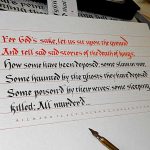 For God's sake, let us sit upon the ground
And tell sad stories of the death of kings.
How some have been deposed; some slain in war,
Some haunted by the ghosts they have deposed
Some poison'd by their wives; some sleeping
killed: All murdered.